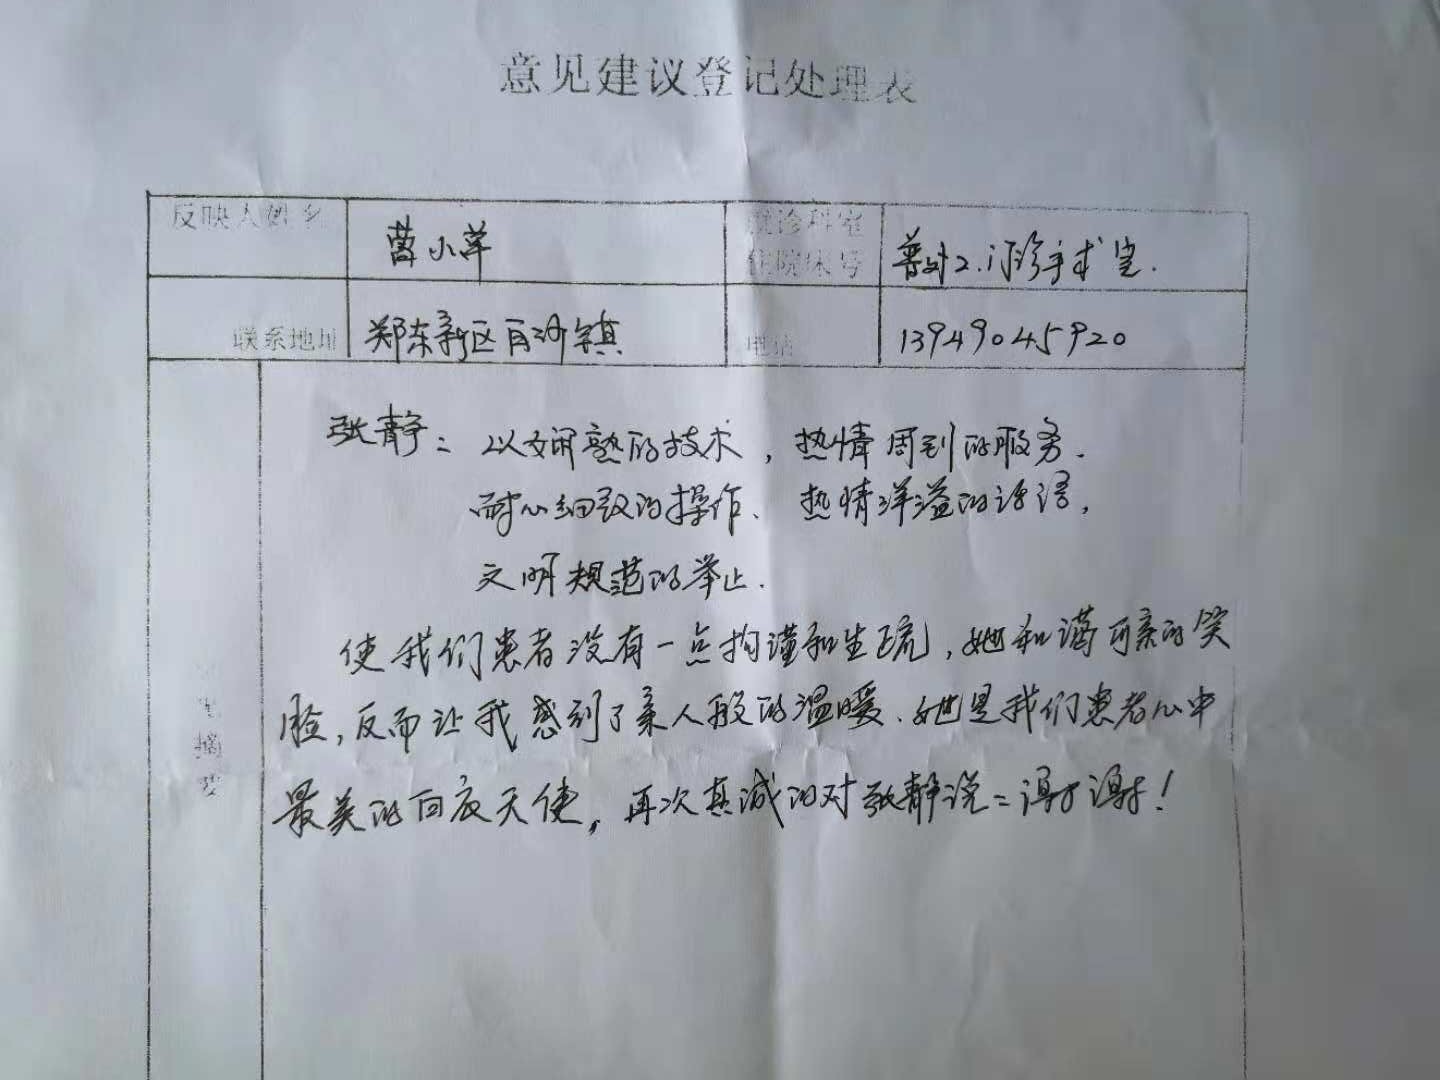 意见建议登记处理表
反映人姓名 曹小苹 就诊科室
住院床号 普外2.门诊手术室.
联系地址 郑东新区白沙镇 电话 13949045920
张静: 以娴熟的技术, 热情周到的服务.
耐心细致的操作、热情洋溢的话语,
文明规范的举止.
使我们患者没有一点拘谨和生疏, 她和蔼可亲的笑
脸, 反而让我感到了亲人般的温暖. 她是我们患者心中
最美的白衣天使, 再次真诚的对张静说: 谢谢!
摘
要